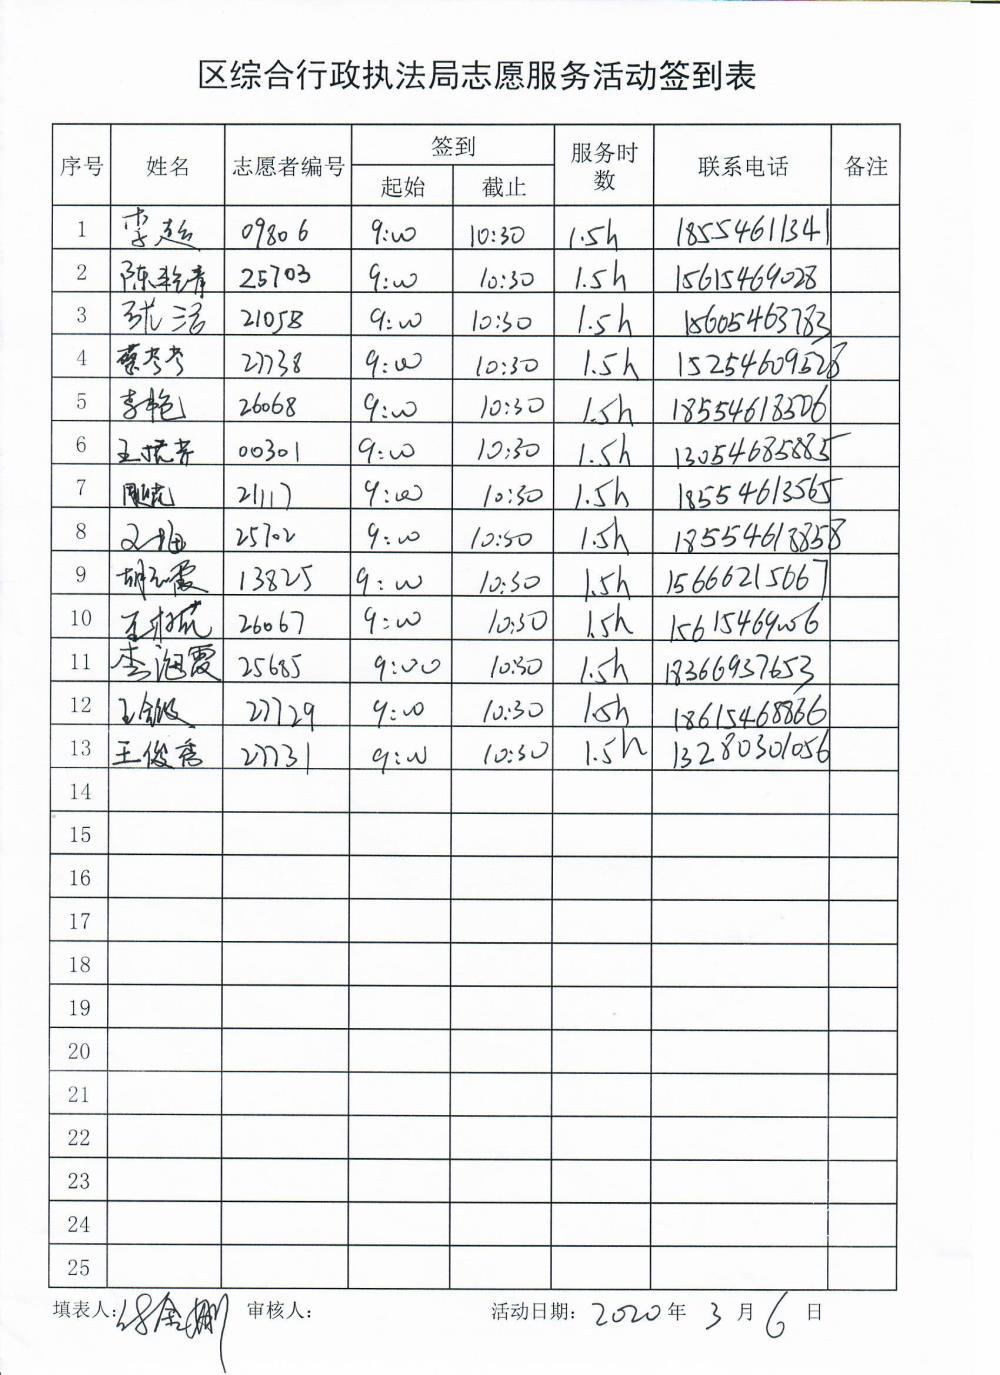 区综合行政执法局志愿服务活动签到表
序号 姓名 志愿者编号 签到 服务时数 联系电话 备注
起始 截止
1 李超 09806 9:00 10:30 1.5h 18554611341
2 陈艳青 25703 9:00 10:30 1.5h 15615469028
3 21058 9:00 10:30 1.5h 15605463783
4 蔡考考 27738 9:00 10:30 1.5h 15254609528
5 李艳 26068 9:00 10:30 1.5h 18554618506
6 00301 9:00 10:30 1.5h 13054685885
7 21117 9:00 10:30 1.5h 18554613565
8 25702 9:00 10:30 1.5h 18554613858
9 13825 9:00 10:30 1.5h 15666215667
10 26067 9:00 10:30 1.5h 15615469006
11 李海霞 25685 9:00 10:30 1.5h 18366937653
12 27729 9:00 10:30 1.5h 18615468866
13 王俊秀 27731 9:00 10:30 1.5h 13280301056
14
15
16
17
18
19
20
21
22
23
24
25
填表人: 审核人: 活动日期: 2020 年 3 月 6 日